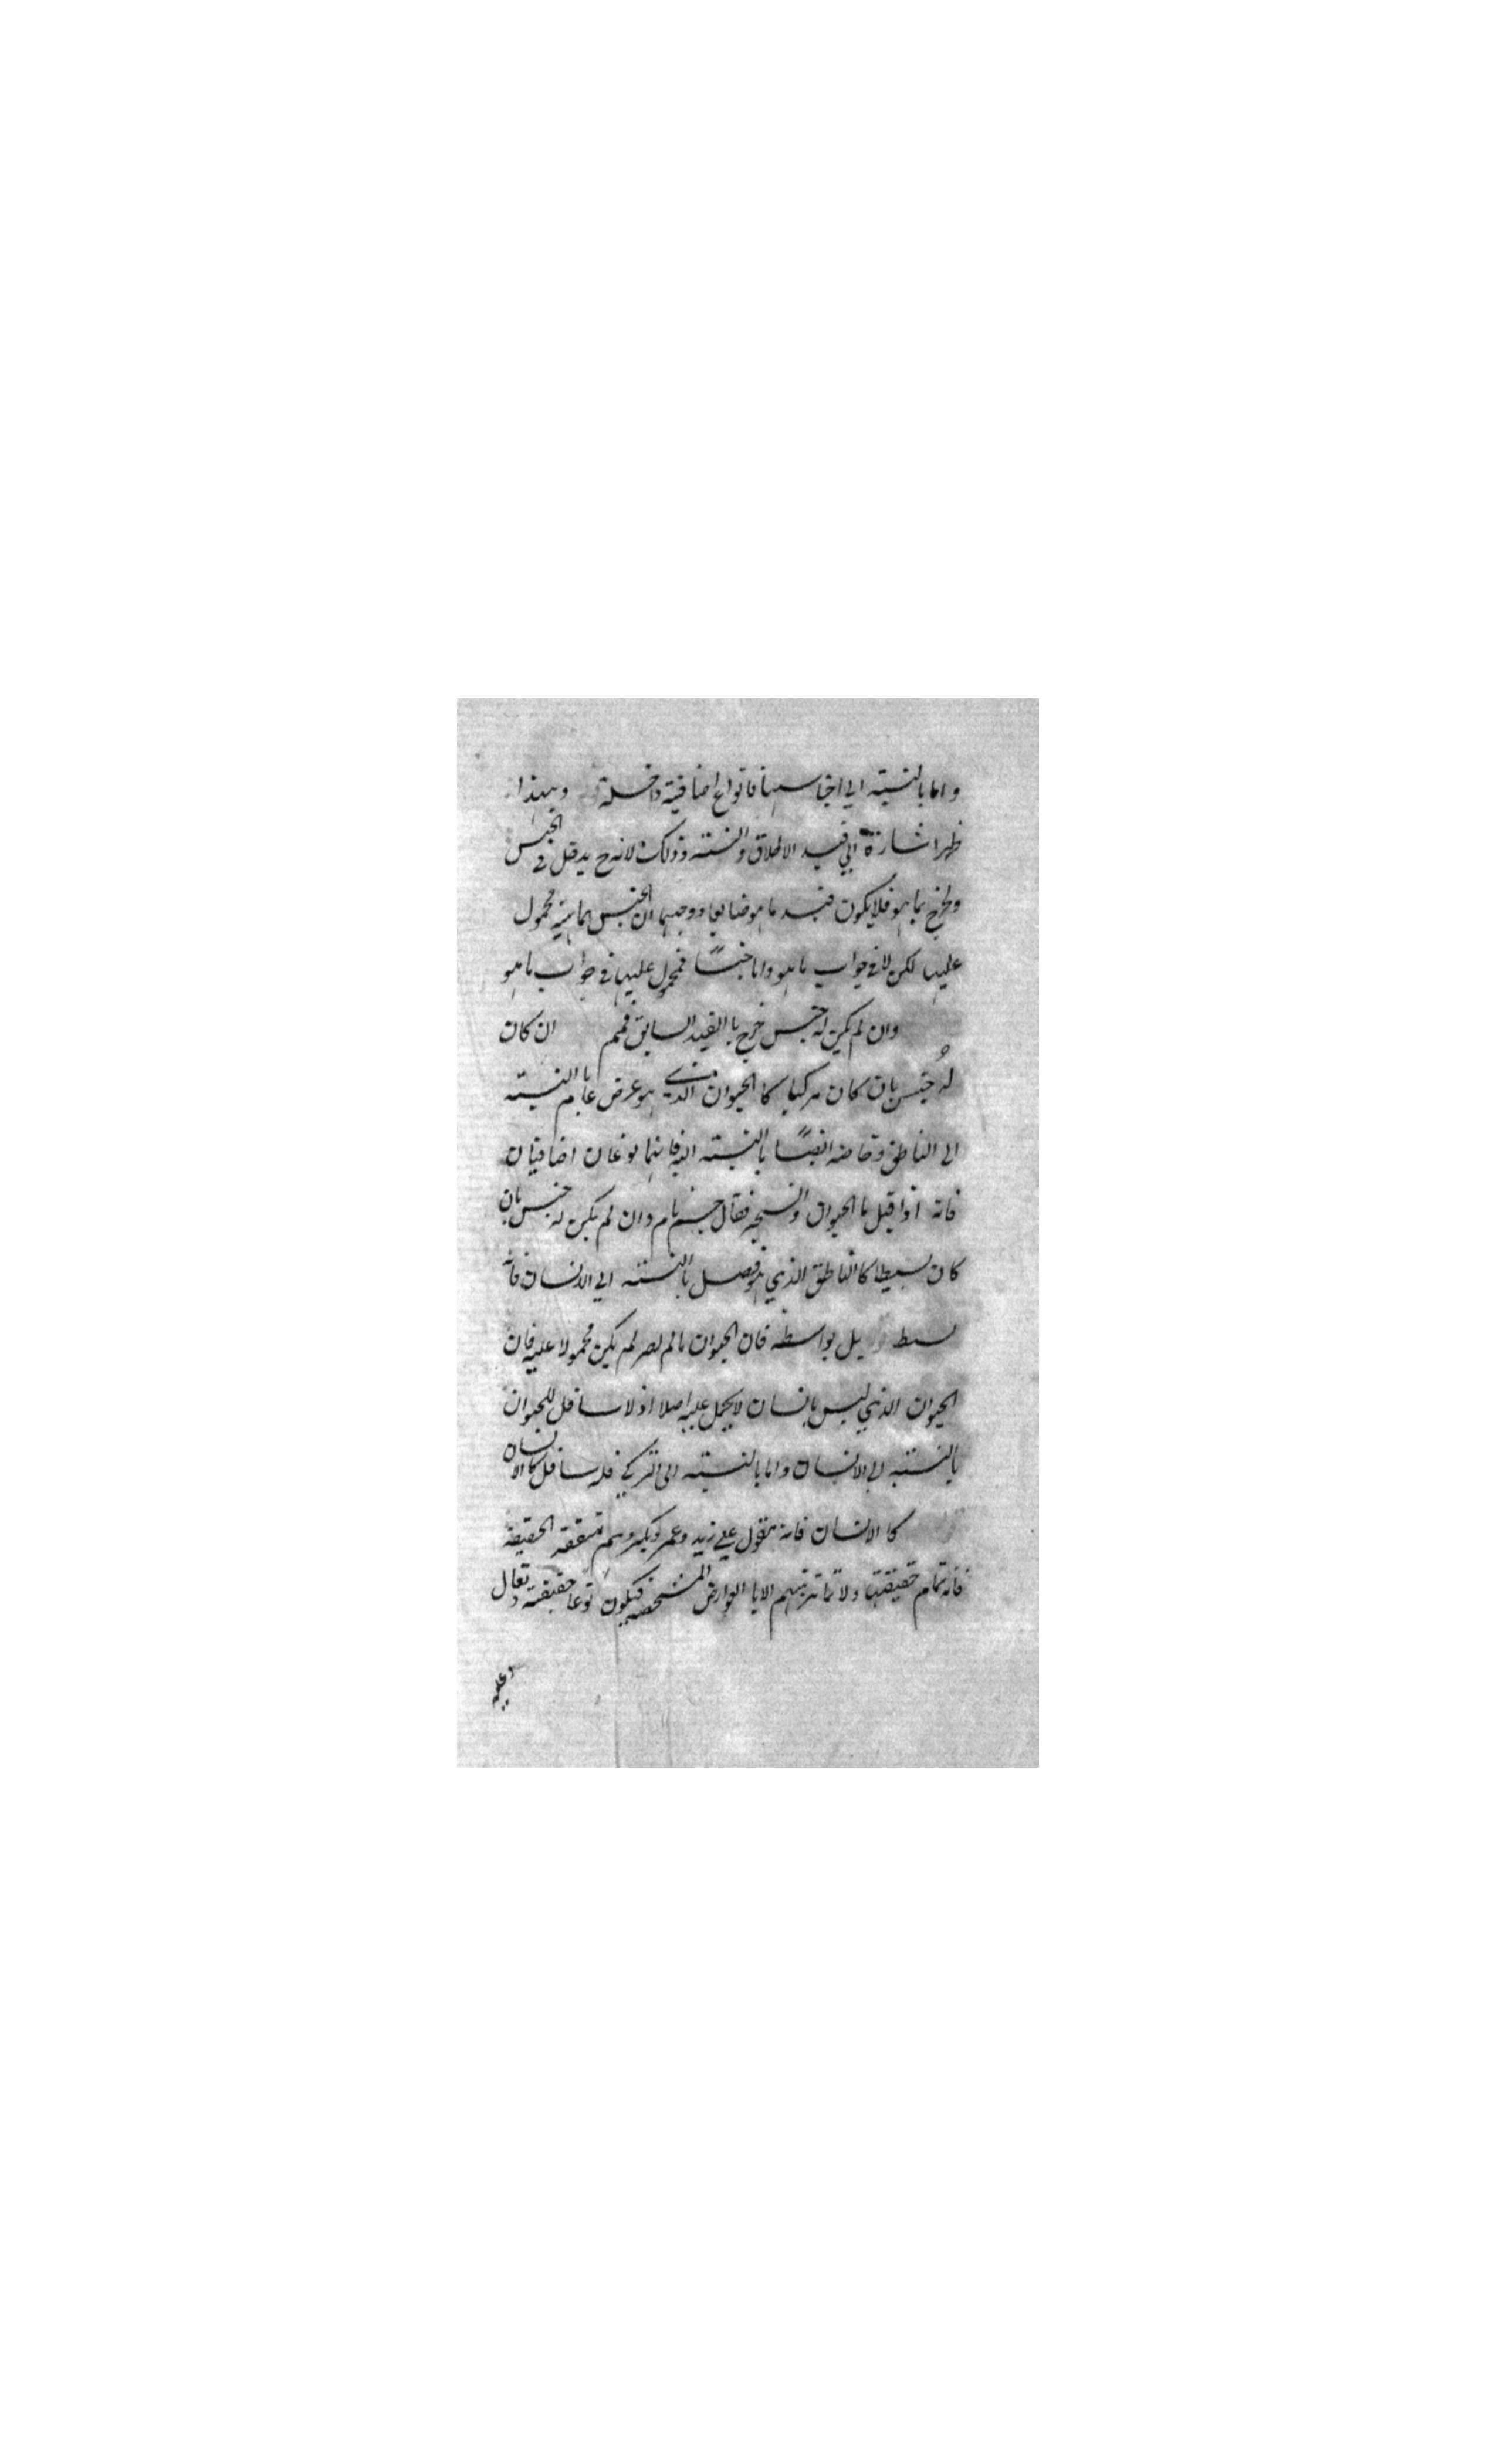 واما بالنسبة الي اجناسها فانواع اضافية داخلة وبهذا
ظهر اشارة الي قيد الاطلاق والنسبة وذلك لانه ح يدخل في الجنس
ويخرج بما هو فلا يكون قيد ما هو ضايعا ووجهها ان الجنس ماهية محمول
عليها لكن لا في جواب ما هو واما جنسًا فمحمول عليها في جواب ما هو
وان لم يكن له جنس خرج با القيد السابق فمم ان كان
له جنس بان كان مركبا كا الحيوان الذي هو عرض عام با النسبة
الي الناطق وخاصه ايضًا بالنسبة اليه فانهما نوعان اضافيان
فانه اذا قيل ما الحيوان والشجر فقال جسم نام وان لم يكن له جنس بان
كان بسيطا كا الناطق الذي هو فصل با النسبة الي الانسان فانه
بسيط بل بواسطة فان الحيوان مالم يصر لم يكن محمولا عليه فان
الحيوان الذي ليس بانسان لا يحمل عليه اصلا اذ لا سافل للحيوان
بالنسبة الي الانسان واما بالنسبة الي التركي فله سافل كالانسان
كا الانسان فانه مقول علي زيد وعمر وبكر وهم متفقة الحقيقة
فانه تمام حقيقتها ولا تمايز بينهم الا با العوارض المشخصة فيكون نوعا حقيقة تعال
وعليه